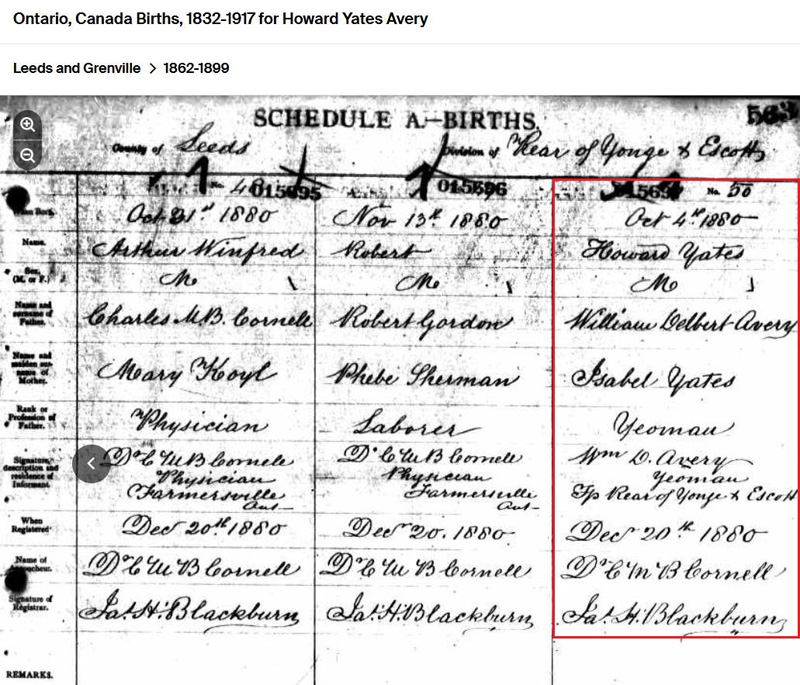 Ontario, Canada Births, 1832-1917 for Howard Yates Avery
Leeds and Grenville > 1862-1899
SCHEDULE A.—BIRTHS.
County of Leeds
Division of Rear of Yonge & Escott
No. 015695
015696
No. 50
When Born.
Oct 31st 1880
Nov 13th 1880
Oct 4th 1880
Name.
Arthur Winfred
Robert
Howard Yates
Sex, (M. or F.)
M
M
M
Name and surname of Father.
Charles M.B. Cornell
Robert Gordon
William Delbert Avery
Name and maiden surname of Mother.
Mary Hoyl
Phebe Sherman
Isabel Yates
Rank or Profession of Father.
Physician
Laborer
Yeoman
Signature, description and residence of Informant.
Dr C M B Cornell
Physician
Farmersville
Ont
Dr C M B Cornell
Physician
Farmersville
Ont
Wm D. Avery
Yeoman
Tp Rear of Yonge & Escott
When Registered
Dec 20th 1880
Dec 20. 1880
Dec 20th 1880
Name of
Dr C M B Cornell
Dr C M B Cornell
Dr C M B Cornell
Signature of Registrar.
Jas. H. Blackburn
Jas. H. Blackburn
Jas. H. Blackburn
REMARKS.